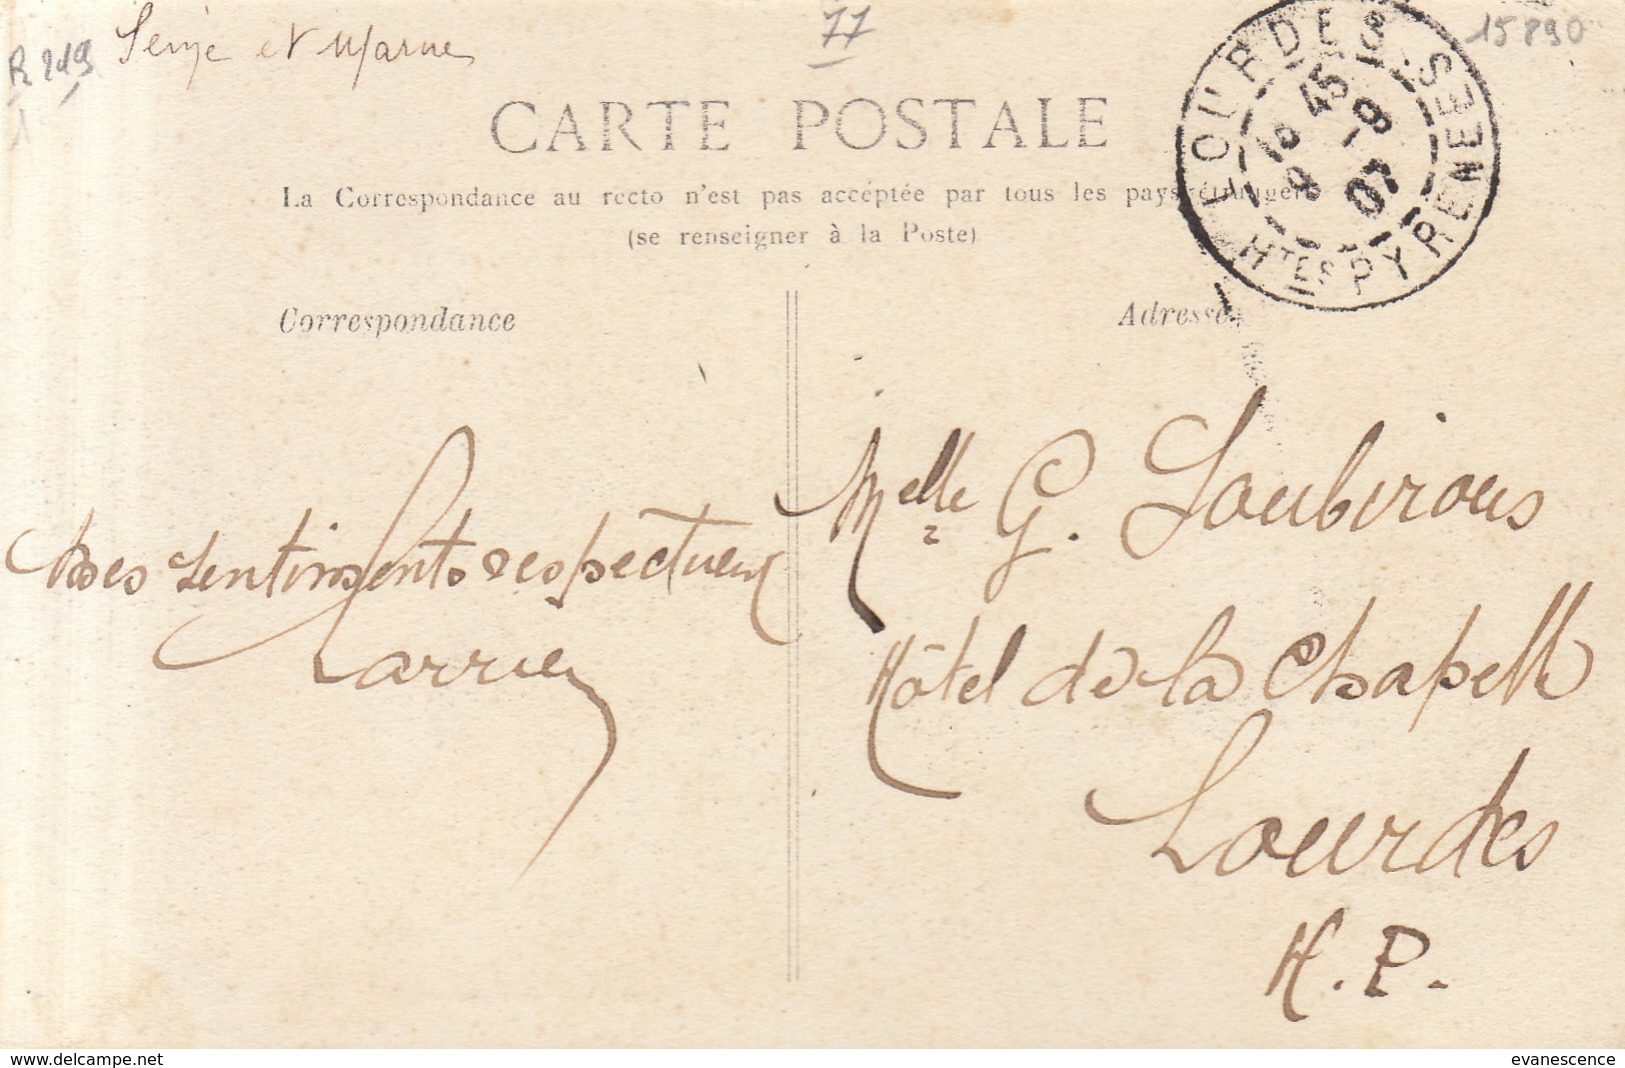 R 219
1
Seine et Marne
77
15890
CARTE POSTALE
La Correspondance au recto n'est pas acceptée par tous les pays étrangers
(se renseigner à la Poste)
LOURDES
Htes PYRENEES
8-9
07
Correspondance
Adresse
Mes sentiments respectueux
Larrieu
Melle G. Soubirous
Hôtel de la Chapelle
Lourdes
H. P.
www.delcampe.net
evanescence